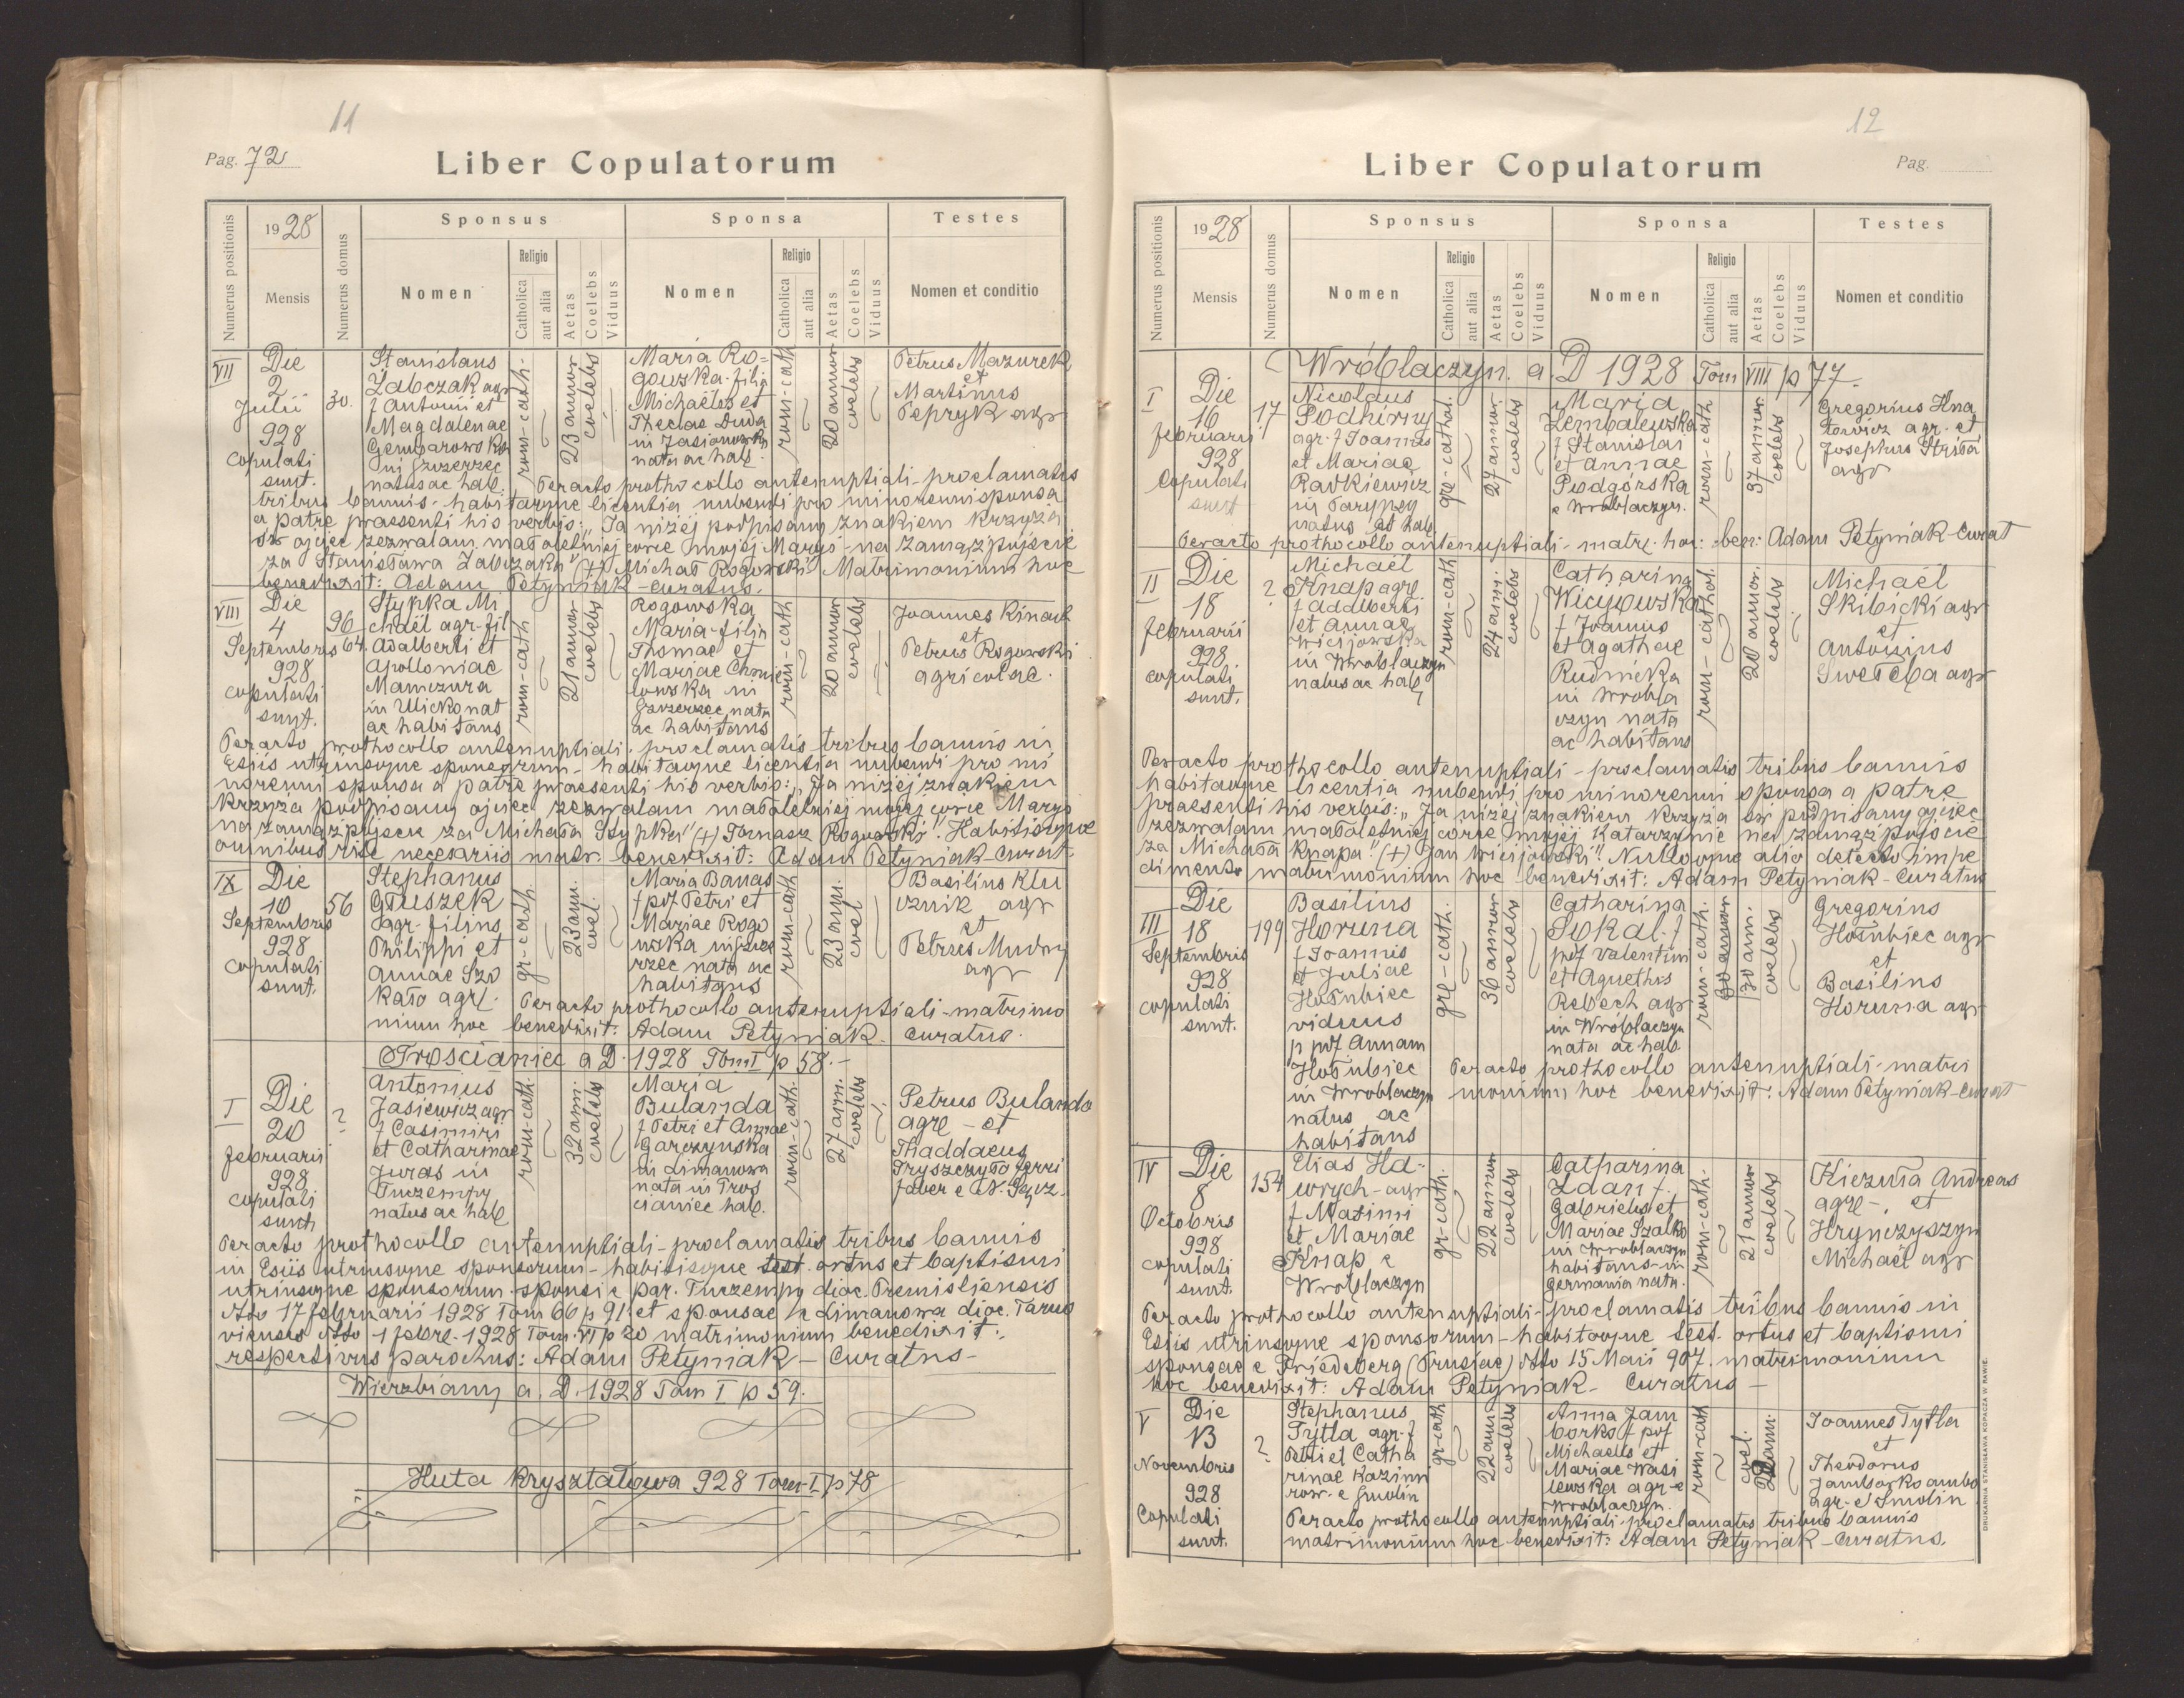 11
Pag. 72
Liber Copulatorum
Numerus positionis
1928
Mensis
Numerus domus
Sponsus
Nomen
Religio
Catholica
aut alia
Aetas
Coelebs
Viduus
Sponsa
Nomen
Religio
Catholica
aut alia
Aetas
Coelebs
Viduus
Testes
Nomen et conditio
VII
Die
2
Julii
928
Copulati
sunt.
30.
Stanislaus
Zabczak agr
f Antonii et
Magdalenae
in Gzrzerzec
natus ac hab.
rom-cath.
23 annor
coelebs
Maria Ro=
gowska filia
Michaëles et
Theclae Duda
in
nata ac hab.
rom-cath
20 annor
coelebs
Petrus Mazurek
et
Martinus
Tepryk agr
Peracto prothocollo antenuptiali-proclamatis
tribus bannis-habitaque licentia nubendi pro minorenni sponsa
a patre praesenti his verbis: "Ja niżej podpisany znakiem krzyża
św ojciec zezwalam małoletniej córce mojej Maryi-na zamążpójście
za Stanisława Zabczaka" (+) Michał Rogowski" Matrimonium hoc
benedixit: Adam Petyniak-curatus.
VIII
Die
4
Septembris
928
copulati
sunt.
96
64.
Stypka Mi
chaël agr-fil
Adalberti et
Apolloniae
Mamczura
in Ulicko nat
ac habitans
rom-cath
21 annor
coelebs
Rogowska
Maria-filia
Thomae et
Mariae Chmie
lowska in
nata
ac habitans
rom-cath
20 annor
coelebs
Joannes Kinach
et
Petrus Rogowski
agricolae.
Peracto prothocollo antenuptiali, proclamatis tribus bannis in
Esiis utriusque sponsorum-habitaque licentia nubendi pro mi
norenni sponsa a patre praesenti his verbis: "Ja niżej znakiem
krzyża podpisany ojciec zezwalam małoletniej mojej córce Maryi
na zamążpójście za Michała Stypkę" (+) Tomasz Rogowski". Habitisque
omnibus rite necesariis matr. benedixit: Adam Petyniak-Curat.
IX
Die
10
Septembris
928
Copulati
sunt.
56
Stephanus
Głuszek
agr-filius
Philippi et
Annae Szo
kało agr.
gr-cath.
23 ann.
coel.
Maria Banas
f pof Petri et
Mariae Rogo
wska in
rzec nata ac
habitans
rom-cath
23 ann.
coel
Basilius Klu
cznik agr
et
Petrus Mudry
agr
Peracto prothocollo antenuptiali-matrimo
nium hoc benedixit: Adam Petyniak. Curatus.
Trościaniec a D. 1928 Tom I p 58.-
I
Die
20
februarii
928
copulati
sunt
?
Antonius
Jasiewicz agr
f Casimiri
et Catharinae
Juras in
Tuczempy
natus ac hab
rom-cath.
32 ann.
coelebs
Maria
Bulanda
f Petri et Annae
Garczyńska
in Limanowa
nata in Tros
cianiec hab.
rom-cath.
27 ann.
coelebs
Petrus Bulanda
agr - et
Thaddaeus
Tryszczyło ferri
faber e N. Sącz.
Peracto prothocollo antenuptiali-proclamatis tribus bannis
in Esiis utriusque sponsorum-habitisque test. ortus et baptismi
utriusque sponsorum-sponsi e par. Tuczempy dioc. Premisliensis
ddo 17 februarii 1928 Tom 60 p 91 et sponsae e Limanowa dioc. Tarno
viensis ddo 1 febr. 1928 Tom VI p 20 matrimonium benedixit:
respectivus parochus: Adam Petyniak-Curatus-
Wierzbiany a. D. 1928 Tom I p 59.
Huta Kryształowa 928 Tom-I p 78
12
Liber Copulatorum
Pag.
Numerus positionis
1928
Mensis
Numerus domus
Sponsus
Nomen
Religio
Catholica
aut alia
Aetas
Coelebs
Viduus
Sponsa
Nomen
Religio
Catholica
aut alia
Aetas
Coelebs
Viduus
Testes
Nomen et conditio
Wróblaczyn. a. D 1928 Tom VIII p 77.
I
Die
16
februarii
928
Copulati
sunt
17
Nicolaus
Podhirny
agr. f Joannis
et Mariae
Radkiewicz
in Parypsy
natus et hab
gr-cathol.
27 annor.
coelebs
Maria
Zembalewska
f Stanislai
et Annae
Podgórska
e Wróblaczyn.
rom-cath
37 annor.
coelebs
Gregorius Hna
towicz agr. et
Josephus Striła
agr
Peracto prothocollo antenuptiali-matr. hoc: ben: Adam Petyniak-Curat
II
Die
18
februarii
928.
copulati
sunt.
?
Michaël
Knap agr.
f Adalberti
et Annae
Wicijowska
in Wróblaczyn
natus ac hab
rom-cath
24 anni.
coelebs
Catharina
Wicyjowska
f Joannis
et Agathae
Rudnicka
in Wrobla
czyn nata
ac habitans
rom-cathol.
20 annor.
coelebs
Michaël
Skibicki agr
et
Antonius
agr
Peracto prothocollo antenuptiali-proclamatis tribus bannis
habitaque licentia nubendi pro minorenni sponsa a patre
praesenti his verbis: "Ja niżej znakiem krzyża św podpisany ojciec
zezwalam małoletniej córce mojej Katarzynie na zamążpójście
za Michała Knapa" (+) Jan Wicijowski". Nulloque alio detecto impe
dimento matrimonium hoc benedixit: Adam Petyniak-Curatus
III
Die
18
Septembris
928
copulati
sunt.
199
Basilius
Horuna
f Joannis
et Juliae
Hołubiec
viduus
p pof Annam
Hołubiec
in Wroblaczyn
natus ac
habitans
gr-cath.
36 annor
coelebs
Catharina
Sokal. f
pof Valentini
et Agnethis
Rebech agr
in Wróblaczyn
nata ac hab.
rom-cath.
30 annor
30 ann.
coelebs
Gregorius
Hołubiec agr
et
Basilius
Horuna agr
Peracto prothocollo antenuptiali-matri
monium hoc benedixit: Adam Petyniak-Curat
IV
Die
8
Octobris
928
copulati
sunt.
154
Elias Ha-
wrych-agr
f Maximi
et Mariae
Knap e
Wroblaczyn
gr-cath.
22 annor
coelebs
Catharina
Zdan f.
Gabrielis et
Mariae Szalko
in Wroblaczyn
habitans-in
Germania nata.
rom-cath.
21 annor
coelebs
Kiczuła Andreas
agr-, et
Hrynczyszyn
Michaël agr
Peracto prothocollo antenuptiali-proclamatis tribus bannis in
Esiis utriusque sponsorum-habitoque test. ortus et baptismi
sponsae e Friedeberg (Prusiae) ddo 15 Maii 907. matrimonium
hoc benedixit: Adam Petyniak- Curatus-
V
Die
13
Novembris
928
Copulati
sunt.
?
Stephanus
Tytla agr-f
Petri et Catha
rinae Kazimi
row-e Smolin
gr-cath
22 ann
coelebs
Anna Jam
borko f pof
Michaelis et
Mariae Wasi
lewska agr-e
Wroblaczyn.
rom-cath
coel.
Joannes Tytla
et
Theodorus
agr-e Smolin
Peracto prothocollo antenuptiali-proclamatis tribus bannis
matrimonium hoc benedixit: Adam Petyniak-Curatus.
DRUKARNIA STANISŁAWA KOPACZA W RAWIE.